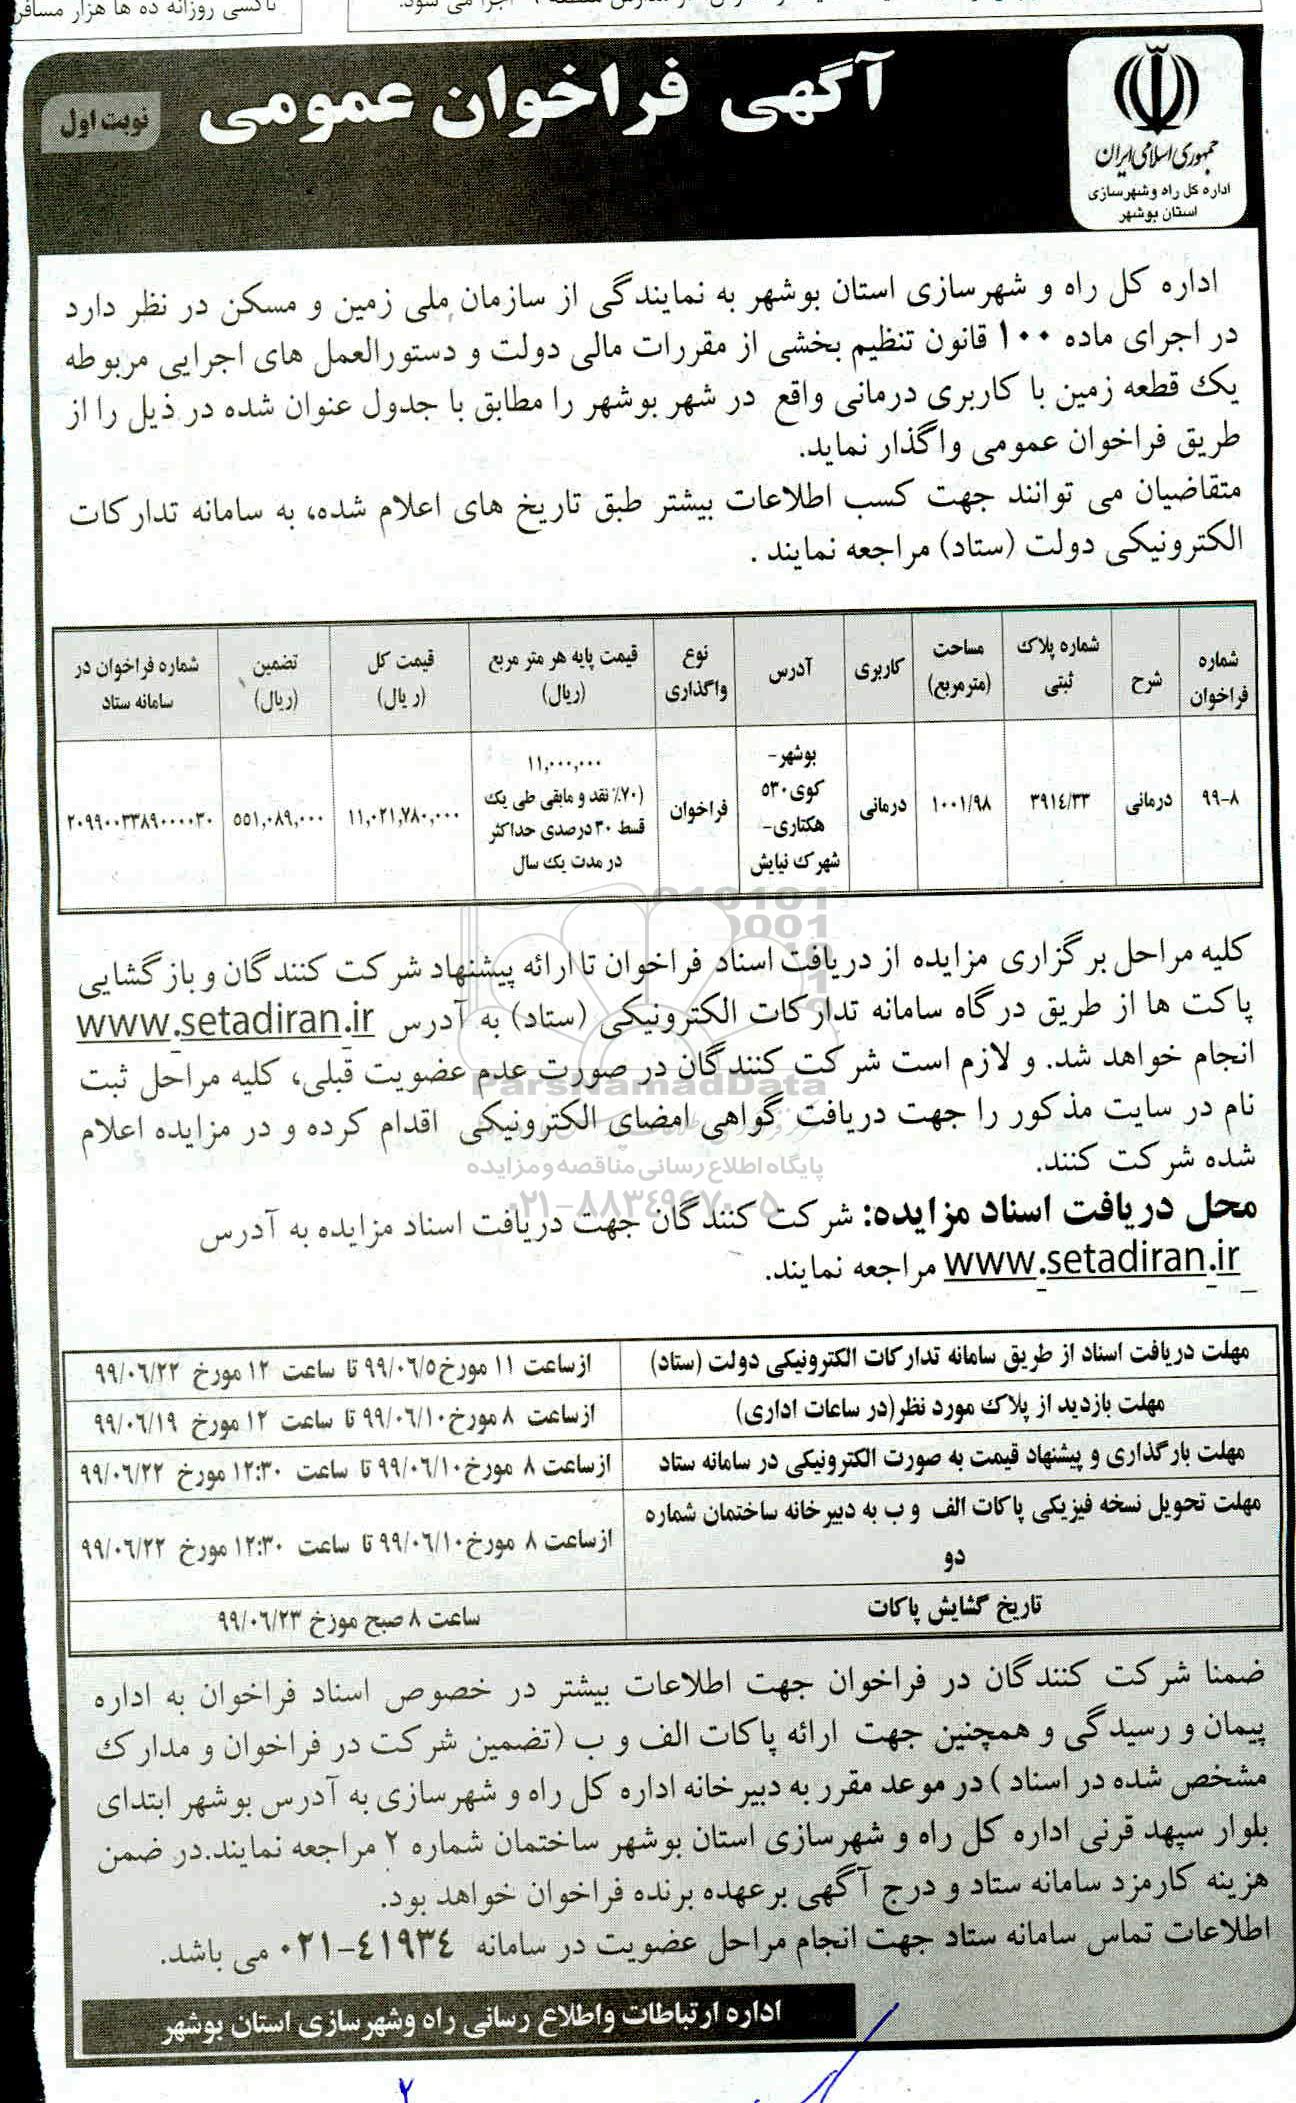 تاکسی روزانه ده ها هزار مسافر
جمهوری اسلامی ایران
اداره کل راه و شهرسازی
استان بوشهر
آگهی فراخوان عمومی
نوبت اول
اداره کل راه و شهرسازی استان بوشهر به نمایندگی از سازمان ملی زمین و مسکن در نظر دارد
در اجرای ماده ۱۰۰ قانون تنظیم بخشی از مقررات مالی دولت و دستورالعمل های اجرایی مربوطه
یک قطعه زمین با کاربری درمانی واقع در شهر بوشهر را مطابق با جدول عنوان شده در ذیل را از
طریق فراخوان عمومی واگذار نماید.
متقاضیان می توانند جهت کسب اطلاعات بیشتر طبق تاریخ های اعلام شده، به سامانه تدارکات
الکترونیکی دولت (ستاد) مراجعه نمایند .
شماره فراخوان
شرح
شماره پلاک ثبتی
مساحت (مترمربع)
کاربری
آدرس
نوع واگذاری
قیمت پایه هر متر مربع (ریال)
قیمت کل (ریال)
تضمین (ریال)
شماره فراخوان در سامانه ستاد
۹۹-۸
درمانی
۳۹۱۴/۳۳
۱۰۰۱/۹۸
درمانی
بوشهر-
کوی ۵۳۰
هکتاری-
شهرک نیایش
فراخوان
۱۱,۰۰۰,۰۰۰
(۷۰٪ نقد و مابقی طی یک
قسط ۳۰ درصدی حداکثر
در مدت یک سال
۱۱,۰۲۱,۷۸۰,۰۰۰
۵۵۱,۰۸۹,۰۰۰
۲۰۹۹۰۰۳۳۸۹۰۰۰۰۳۰
کلیه مراحل برگزاری مزایده از دریافت اسناد فراخوان تا ارائه پیشنهاد شرکت کنندگان و بازگشایی
پاکت ها از طریق درگاه سامانه تدارکات الکترونیکی (ستاد) به آدرس www.setadiran.ir
انجام خواهد شد. و لازم است شرکت کنندگان در صورت عدم عضویت قبلی، کلیه مراحل ثبت
نام در سایت مذکور را جهت دریافت گواهی امضای الکترونیکی اقدام کرده و در مزایده اعلام
شده شرکت کنند.
ParsNamadData
پایگاه اطلاع رسانی مناقصه و مزایده
۰۲۱-۸۸۳۴۹۶۷۰-۵
محل دریافت اسناد مزایده: شرکت کنندگان جهت دریافت اسناد مزایده به آدرس
www.setadiran.ir مراجعه نمایند.
مهلت دریافت اسناد از طریق سامانه تدارکات الکترونیکی دولت (ستاد)
از ساعت ۱۱ مورخ ۹۹/۰۶/۵ تا ساعت ۱۲ مورخ ۹۹/۰۶/۲۲
مهلت بازدید از پلاک مورد نظر(در ساعات اداری)
از ساعت ۸ مورخ ۹۹/۰۶/۱۰ تا ساعت ۱۲ مورخ ۹۹/۰۶/۱۹
مهلت بارگذاری و پیشنهاد قیمت به صورت الکترونیکی در سامانه ستاد
از ساعت ۸ مورخ ۹۹/۰۶/۱۰ تا ساعت ۱۲:۳۰ مورخ ۹۹/۰۶/۲۲
مهلت تحویل نسخه فیزیکی پاکات الف و ب به دبیرخانه ساختمان شماره
دو
از ساعت ۸ مورخ ۹۹/۰۶/۱۰ تا ساعت ۱۲:۳۰ مورخ ۹۹/۰۶/۲۲
تاریخ گشایش پاکات
ساعت ۸ صبح مورخ ۹۹/۰۶/۲۳
ضمنا شرکت کنندگان در فراخوان جهت اطلاعات بیشتر در خصوص اسناد فراخوان به اداره
پیمان و رسیدگی و همچنین جهت ارائه پاکات الف و ب (تضمین شرکت در فراخوان و مدارک
مشخص شده در اسناد ) در موعد مقرر به دبیرخانه اداره کل راه و شهرسازی به آدرس بوشهر ابتدای
بلوار سپهد قرنی اداره کل راه و شهرسازی استان بوشهر ساختمان شماره ۲ مراجعه نمایند.در ضمن
هزینه کارمزد سامانه ستاد و درج آگهی برعهده برنده فراخوان خواهد بود.
اطلاعات تماس سامانه ستاد جهت انجام مراحل عضویت در سامانه ۴۱۹۳۴-۰۲۱ می باشد.
اداره ارتباطات واطلاع رسانی راه وشهرسازی استان بوشهر
۲